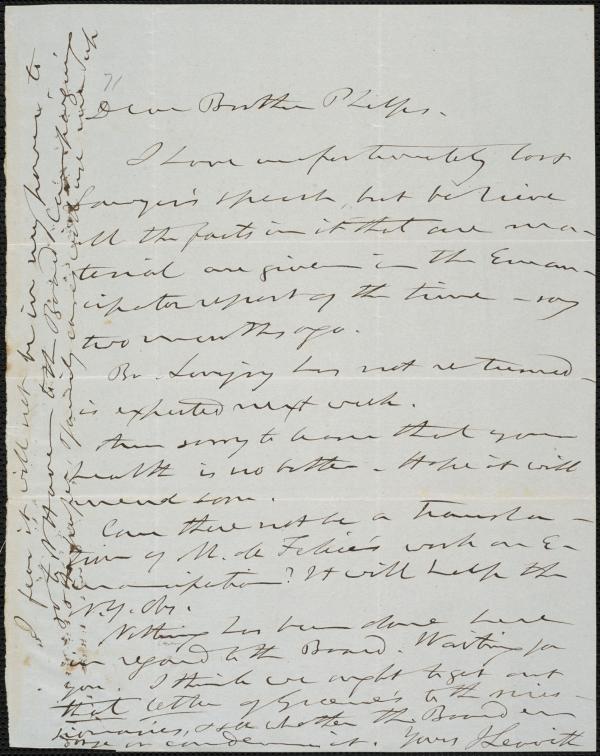 71
Dear Brother Phelps.
I have unfortunately lost
Sawyer's speech, but believe
all the facts in it that are ma-
terial are given in the Eman-
cipator report of the time - say
two months ago.
Br. Lovejoy has not returned -
is expected next week.
Am sorry to learn that your
health is no better - Hope it will
amend soon.
Can there not be a transla-
tion of M. de Felice's work on E-
mancipation? It will help the
N.Y. Obs.
Nothing has been done here
in regard to the Board. Waiting for
you. I think we ought to get out
that letter of Greene's to the mis-
sionaries, & see whether the Board en-
dorse or condemn it. Yours J Leavitt
I fear it will not be in my power to
go to N Haven to the Board.